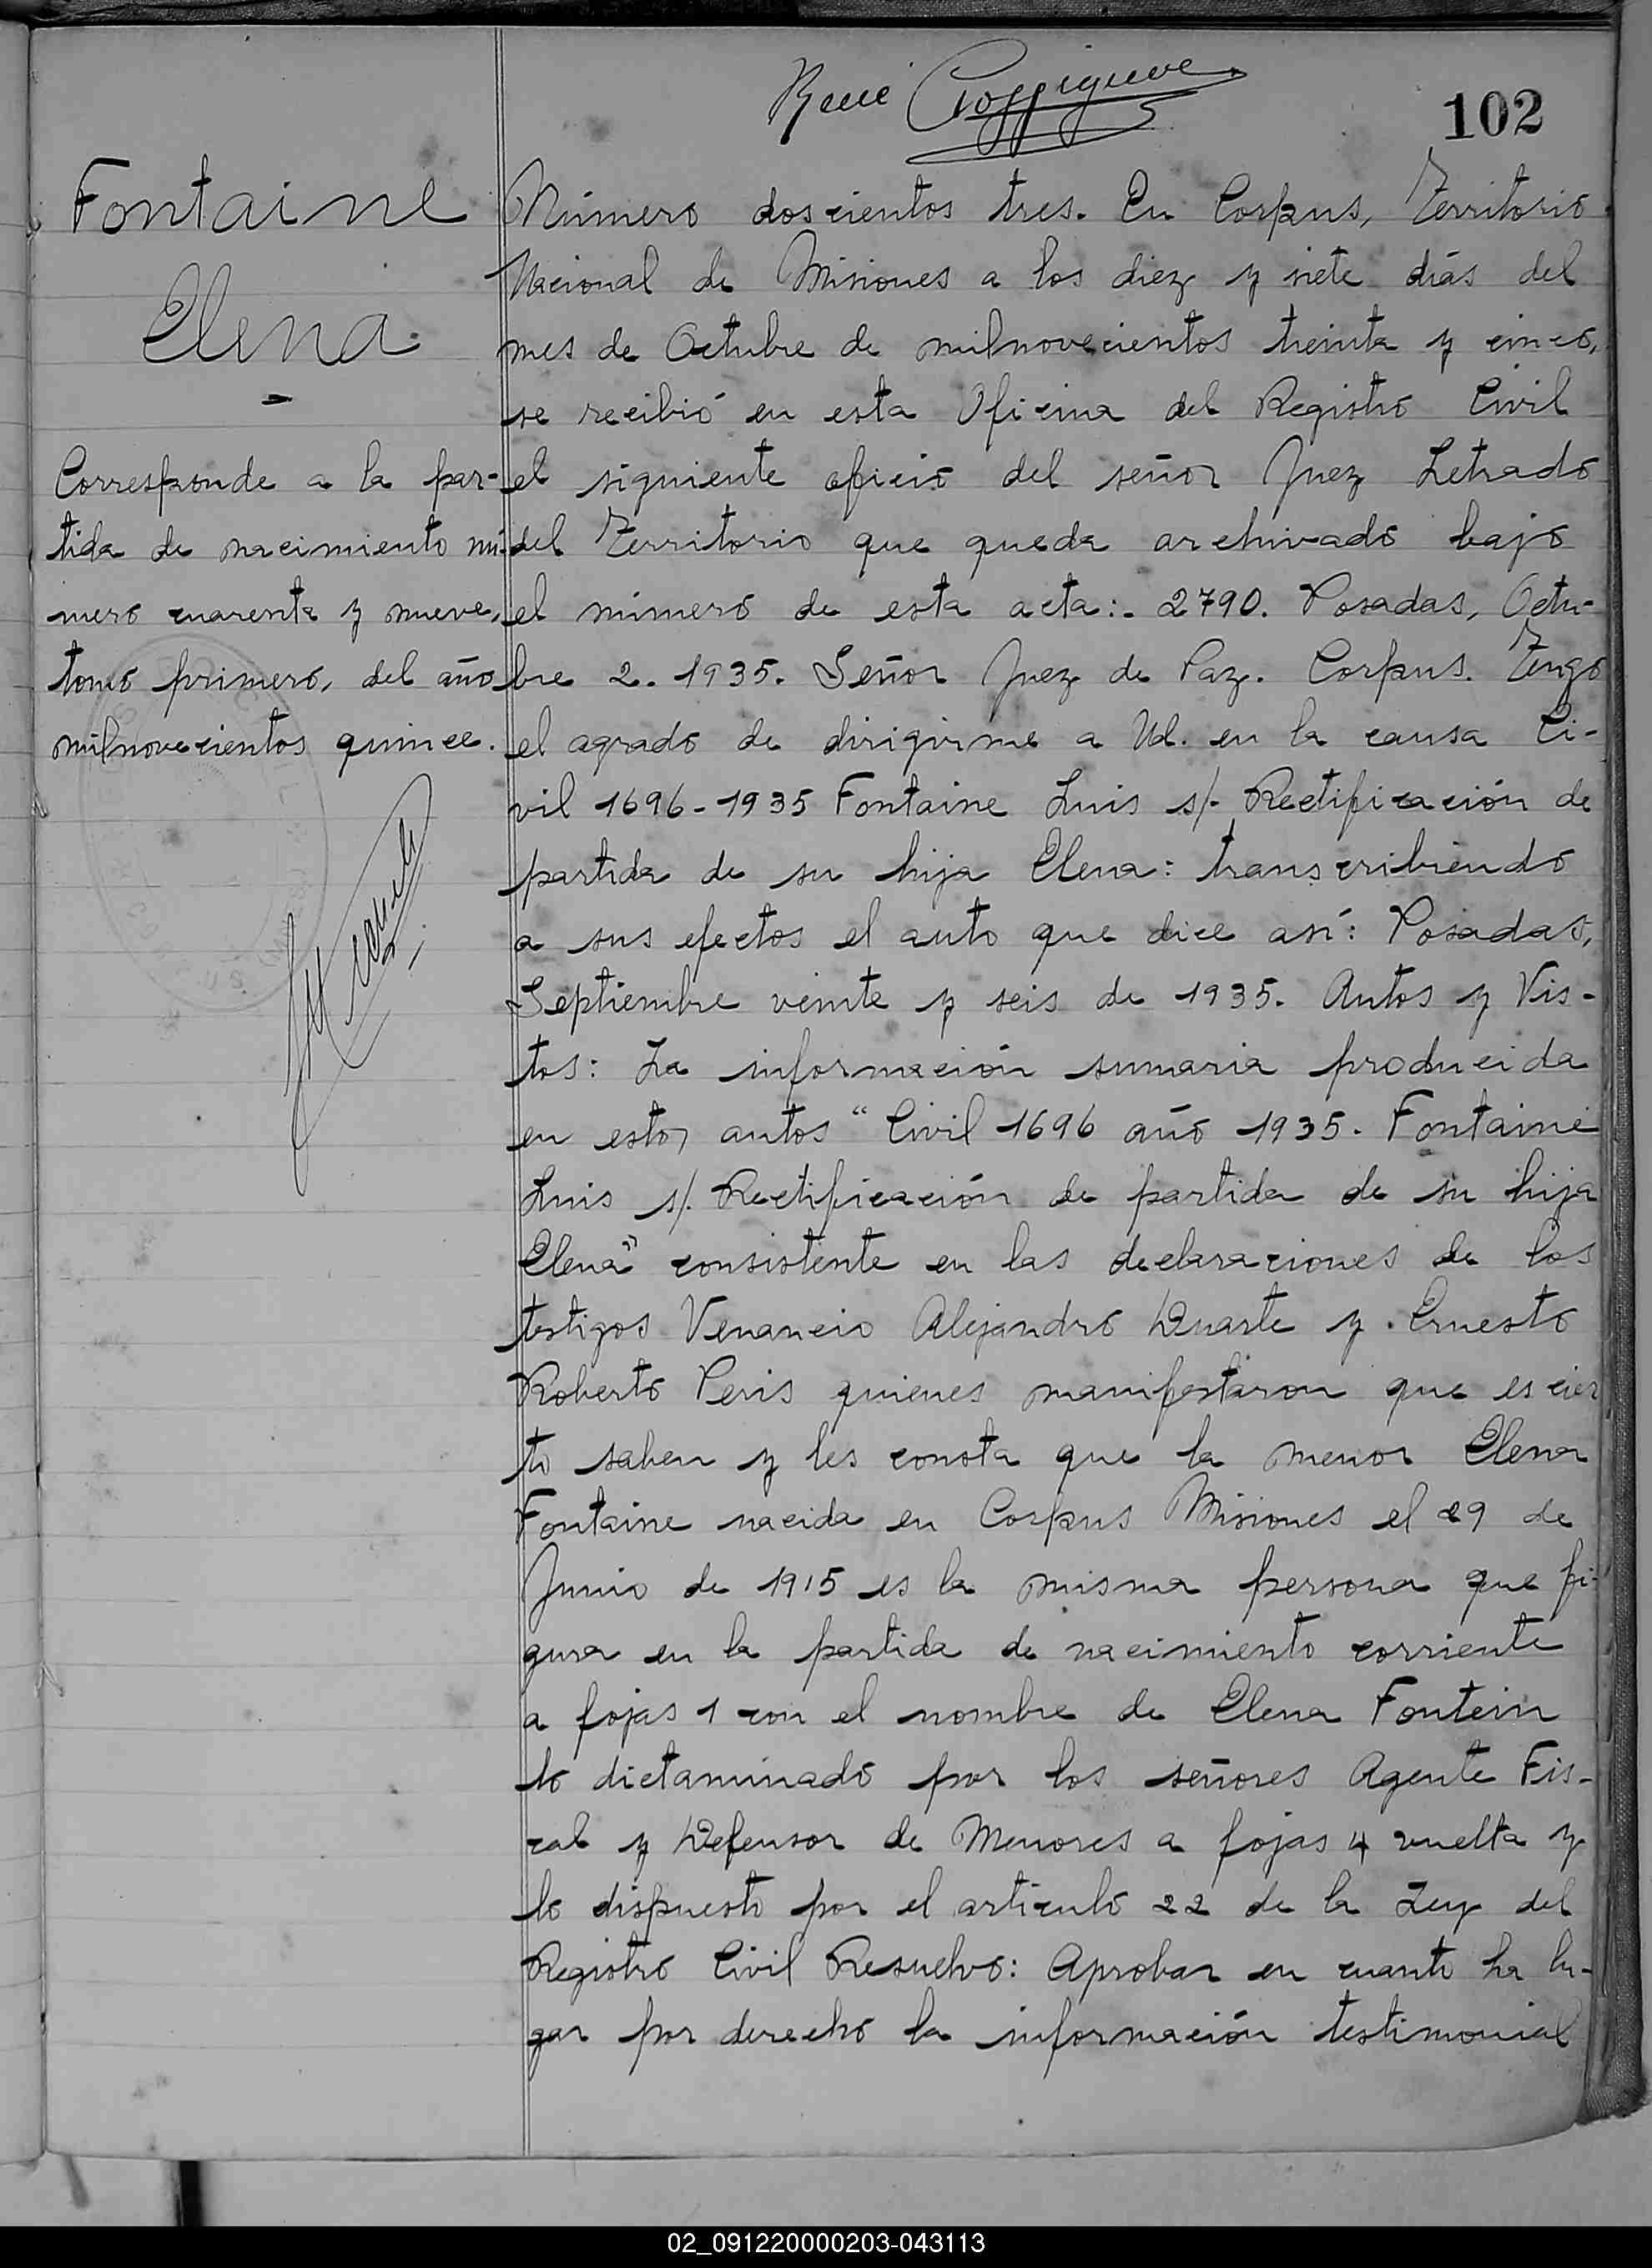 102
Fontaine
Elena
Corresponde a la par-
tida de nacimiento nú-
mero cuarenta y nueve,
tomo primero, del año
milnovecientos quince.
Número doscientos tres. En Corpus, Territorio
Nacional de Misiones a los diez y siete días del
mes de Octubre de milnovecientos treinta y cinco,
se recibió en esta Oficina del Registro Civil
el siguiente oficio del señor Juez Letrado
del Territorio que queda archivado bajo
el número de esta acta:. 2790. Posadas, Octu-
bre 2. 1935. Señor Juez de Paz. Corpus. Tengo
el agrado de dirigirme a Ud. en la causa Ci-
vil 1696-1935 Fontaine Luis s/. Rectificación de
partida de su hija Elena: transcribiendo
a sus efectos el auto que dice así: Posadas,
Septiembre veinte y seis de 1935. Autos y Vis-
tos: La información sumaria producida
en estos autos "Civil 1696 año 1935. Fontaine
Luis s/. Rectificación de partida de su hija
Elena" consistente en las declaraciones de los
testigos Venancio Alejandro Duarte y Ernesto
Roberto Peris quienes manifestaron que es cier
to saben y les consta que la menor Elena
Fontaine nacida en Corpus Misiones el 29 de
Junio de 1915 es la misma persona que fi-
gura en la partida de nacimiento corriente
a fojas 1 con el nombre de Elena Fontein
lo dictaminado por los señores Agente Fis-
cal y Defensor de Menores a fojas 4 vuelta y
lo dispuesto por el artículo 22 de la Ley del
Registro Civil Resuelvo: Aprobar en cuanto ha lu-
gar por derecho la información testimonial
02_091220000203-043113